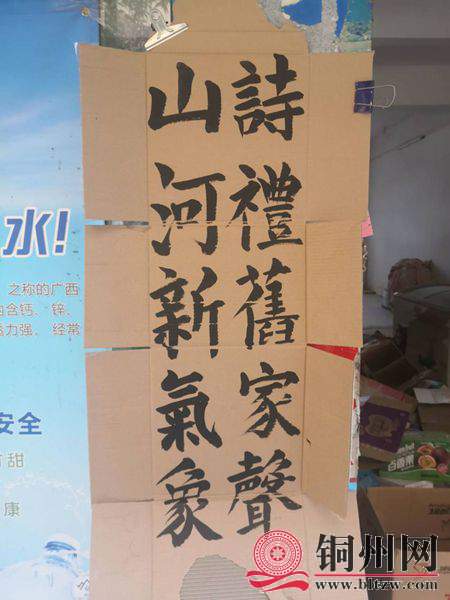 詩禮舊家聲
山河新氣象
水!
之称的广西
含钙、锌、
力强、经常
安全
甜
康
百香果
铜州网
www.bltzw.com